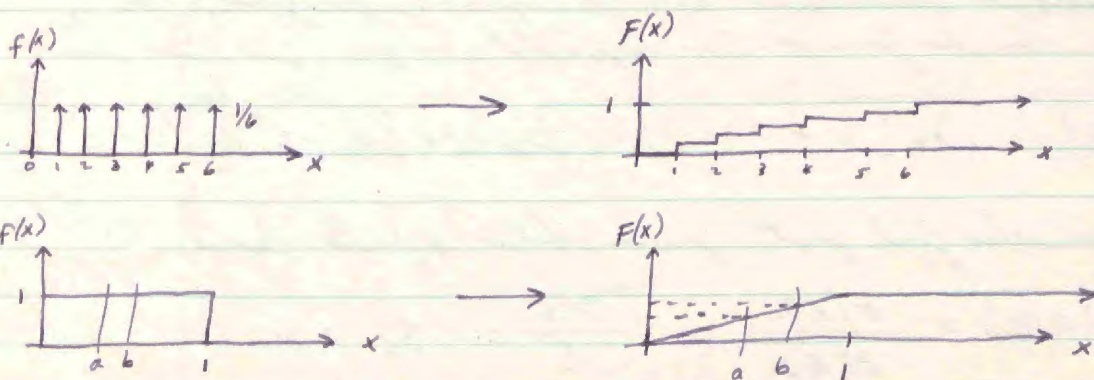 f(x)
1/6
0 1 2 3 4 5 6 x
F(x)
1
1 2 3 4 5 6 x
f(x)
1
a b 1 x
F(x)
a b 1 x